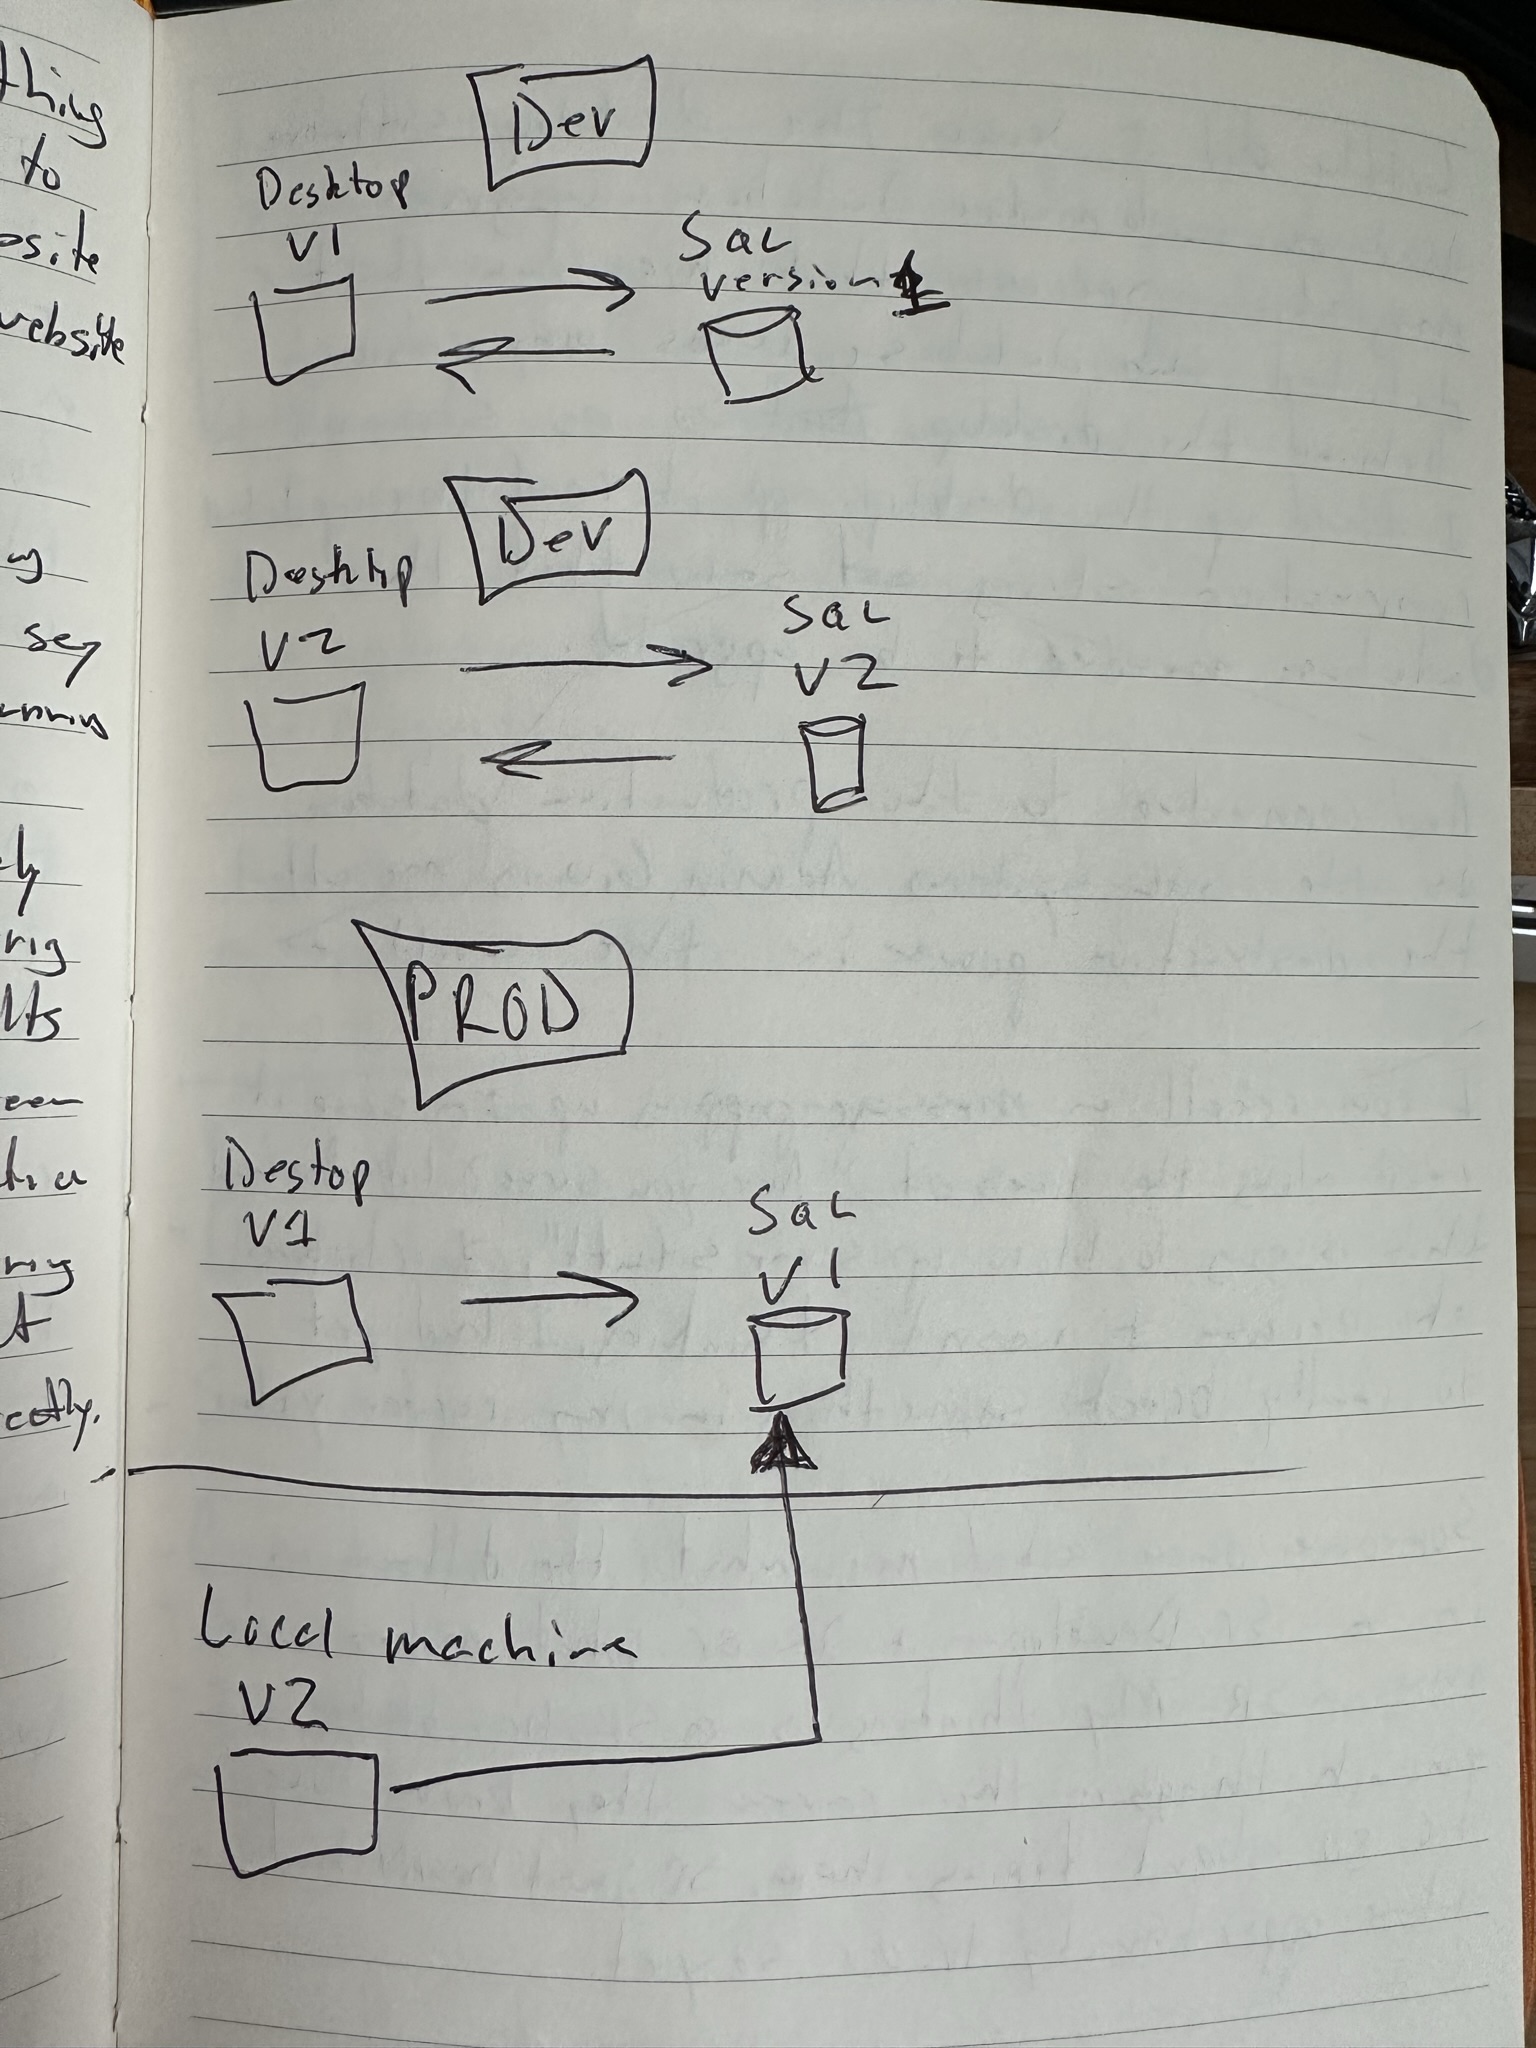 thing
to
osite
website
sey
ely
rig
lts
een
ectly.
Dev
Desktop
V1
SQL
version 1
Dev
Desktop
V2
SQL
V2
PROD
Destop
V1
SQL
V1
Local machine
V2